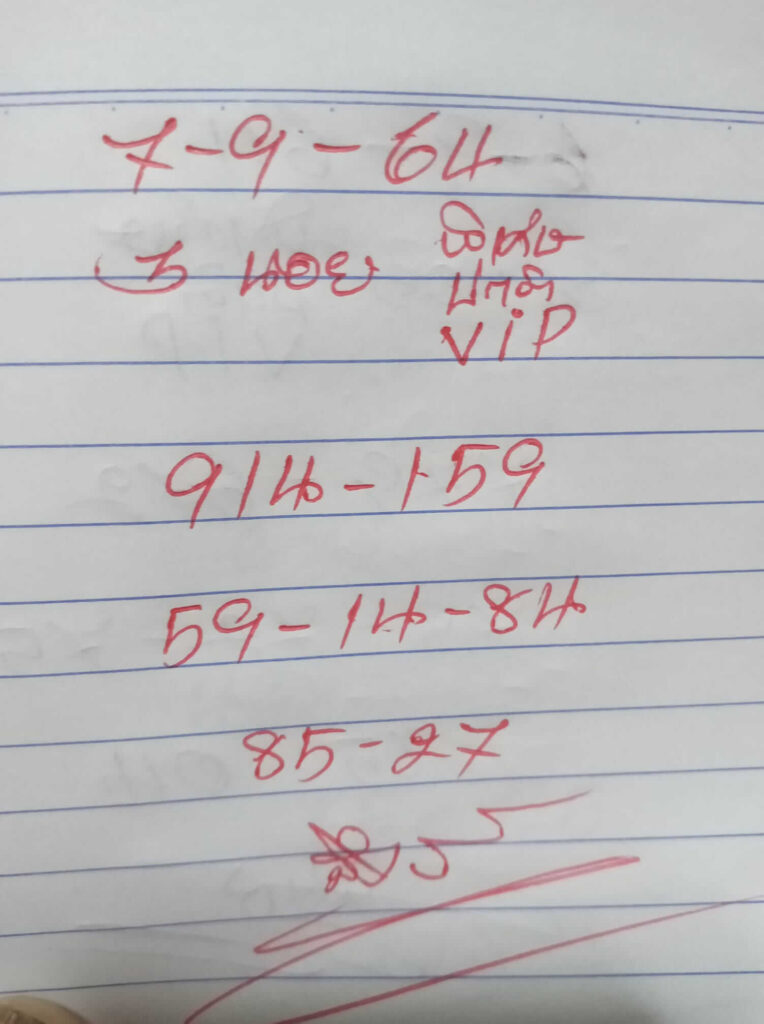 7-9-64
ฮานอย พิเศษ
ปกติ
VIP
914-159
59-14-84
85-27